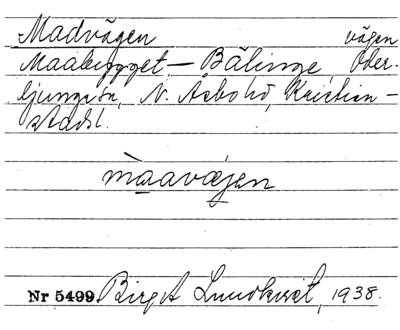 Madvägen vägen
Maabygget – Bälinge, Oder-
ljunga sn, N. Åsbo hd, Kristian-
stads l.
màavæjen
Nr 5499. Birgit Lundkvist, 1938.